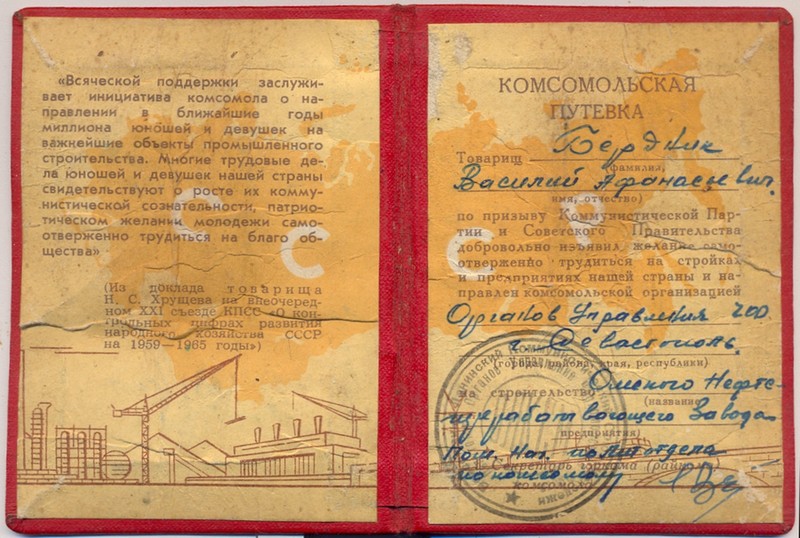 «Всяческой поддержки заслужи-
вает инициатива комсомола о на-
правлении в ближайшие годы
миллиона юношей и девушек на
важнейшие объекты промышленного
строительства. Многие трудовые де-
ла юношей и девушек нашей страны
свидетельствуют о росте их комму-
нистической сознательности, патрио-
тическом желании молодежи само-
отверженно трудиться на благо об-
щества»
(Из доклада товарища
Н. С. Хрущева на внеочеред-
ном XXI съезде КПСС «О кон-
трольных цифрах развития
народного хозяйства СССР
на 1959—1965 годы»)
С
С
КОМСОМОЛЬСКАЯ
ПУТЕВКА
Товарищ Бердник
(фамилия,
Василий Афанасьевич
имя, отчество)
по призыву Коммунистической Пар-
тии и Советского Правительства
добровольно изъявил желание само-
отверженно трудиться на стройках
и предприятиях нашей страны и на-
правлен комсомольской организацией
С
Органов Управления ЧФ
г. Севастополь
(города, района, края, республики)
на строительство Омского Нефте-
(название
перерабатывающего Завода
предприятия)
Пом. Нач. политотдела
Секретарь горкома (райкома)
по комсомолу
комсомола